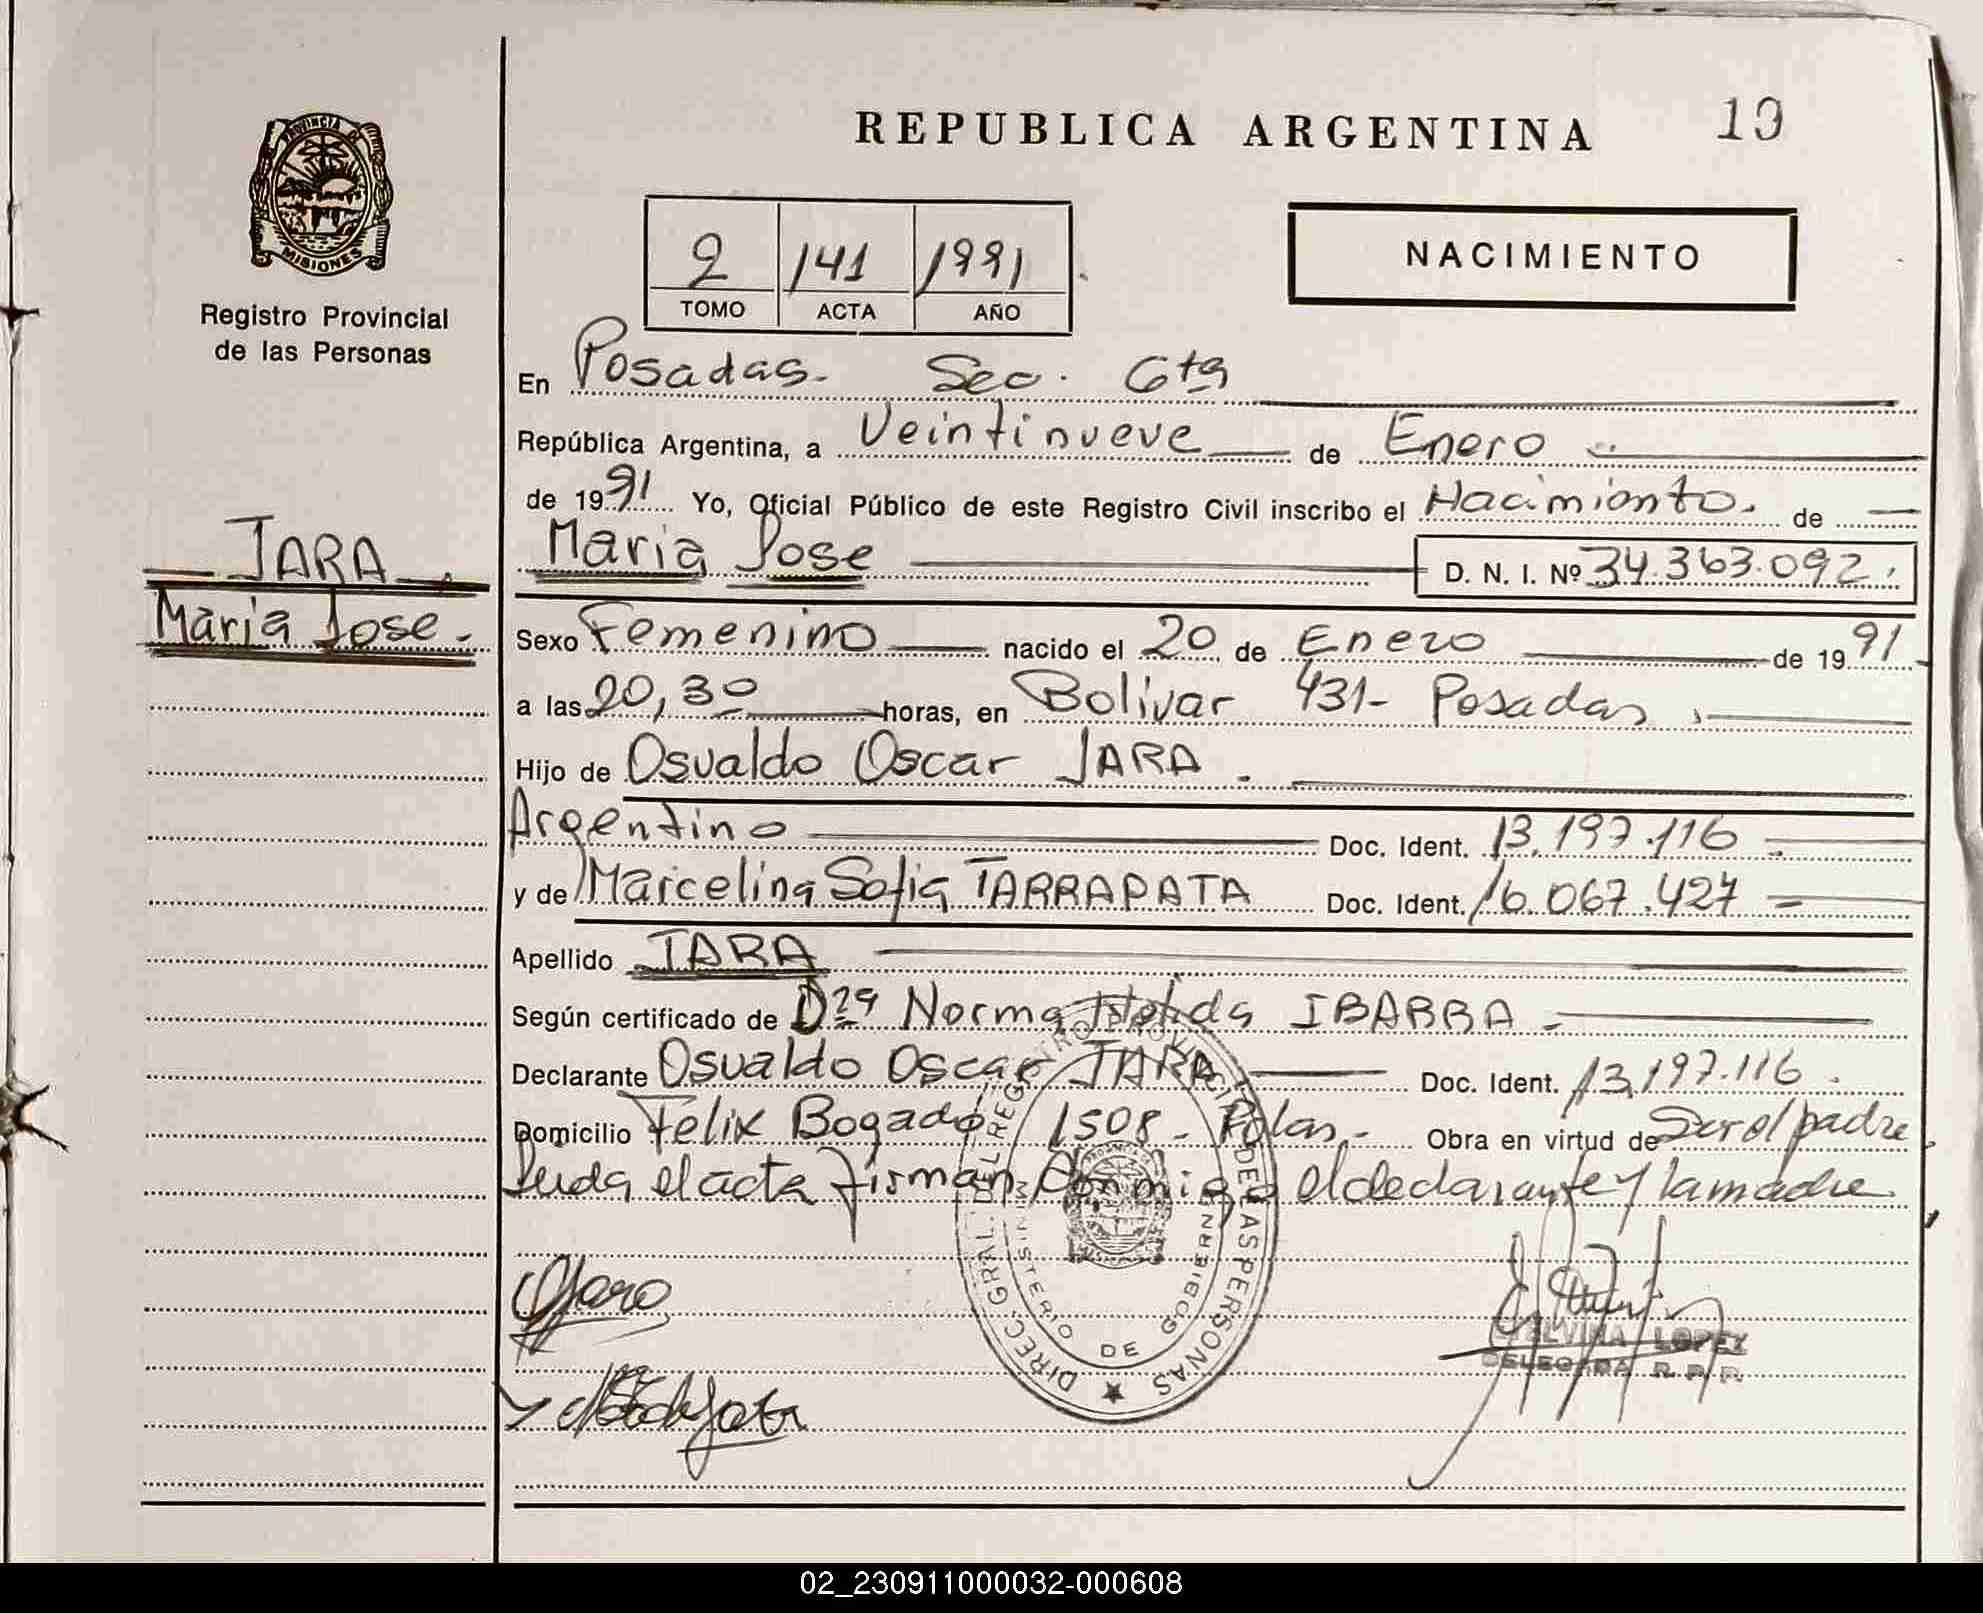 REPUBLICA ARGENTINA
19
PROVINCIA DE
MISIONES
Registro Provincial
de las Personas
2 141 1991
TOMO ACTA AÑO
NACIMIENTO
En Posadas. Sec. 6ta
República Argentina, a Veintinueve de Enero
de 1991 Yo, Oficial Público de este Registro Civil inscribo el Nacimiento. de
JARA
Maria Jose.
Maria Jose D. N. I. Nº 34.363.092.
Sexo Femenino nacido el 20 de Enero de 1991
a las 20,30 horas, en Bolivar 431- Posadas.
Hijo de Osvaldo Oscar JARA.
Argentino Doc. Ident. 13.197.116
y de Marcelina Sofia TARRAPATA Doc. Ident. 16.067.427
Apellido JARA
Según certificado de Dra Norma IBARRA
Declarante Osvaldo Oscar JARA Doc. Ident. 13.197.116.
Domicilio Felix Bogado 1508 - Pdas. Obra en virtud de Ser el padre
Leida el acta firman conmigo el declarante y la madre
DIREC. GRAL. DEL REGISTRO PROVINCIAL DE LAS PERSONAS
MINISTERIO DE GOBIERNO
LOPEZ
DELEGADA R. P. P.
02_230911000032-000608